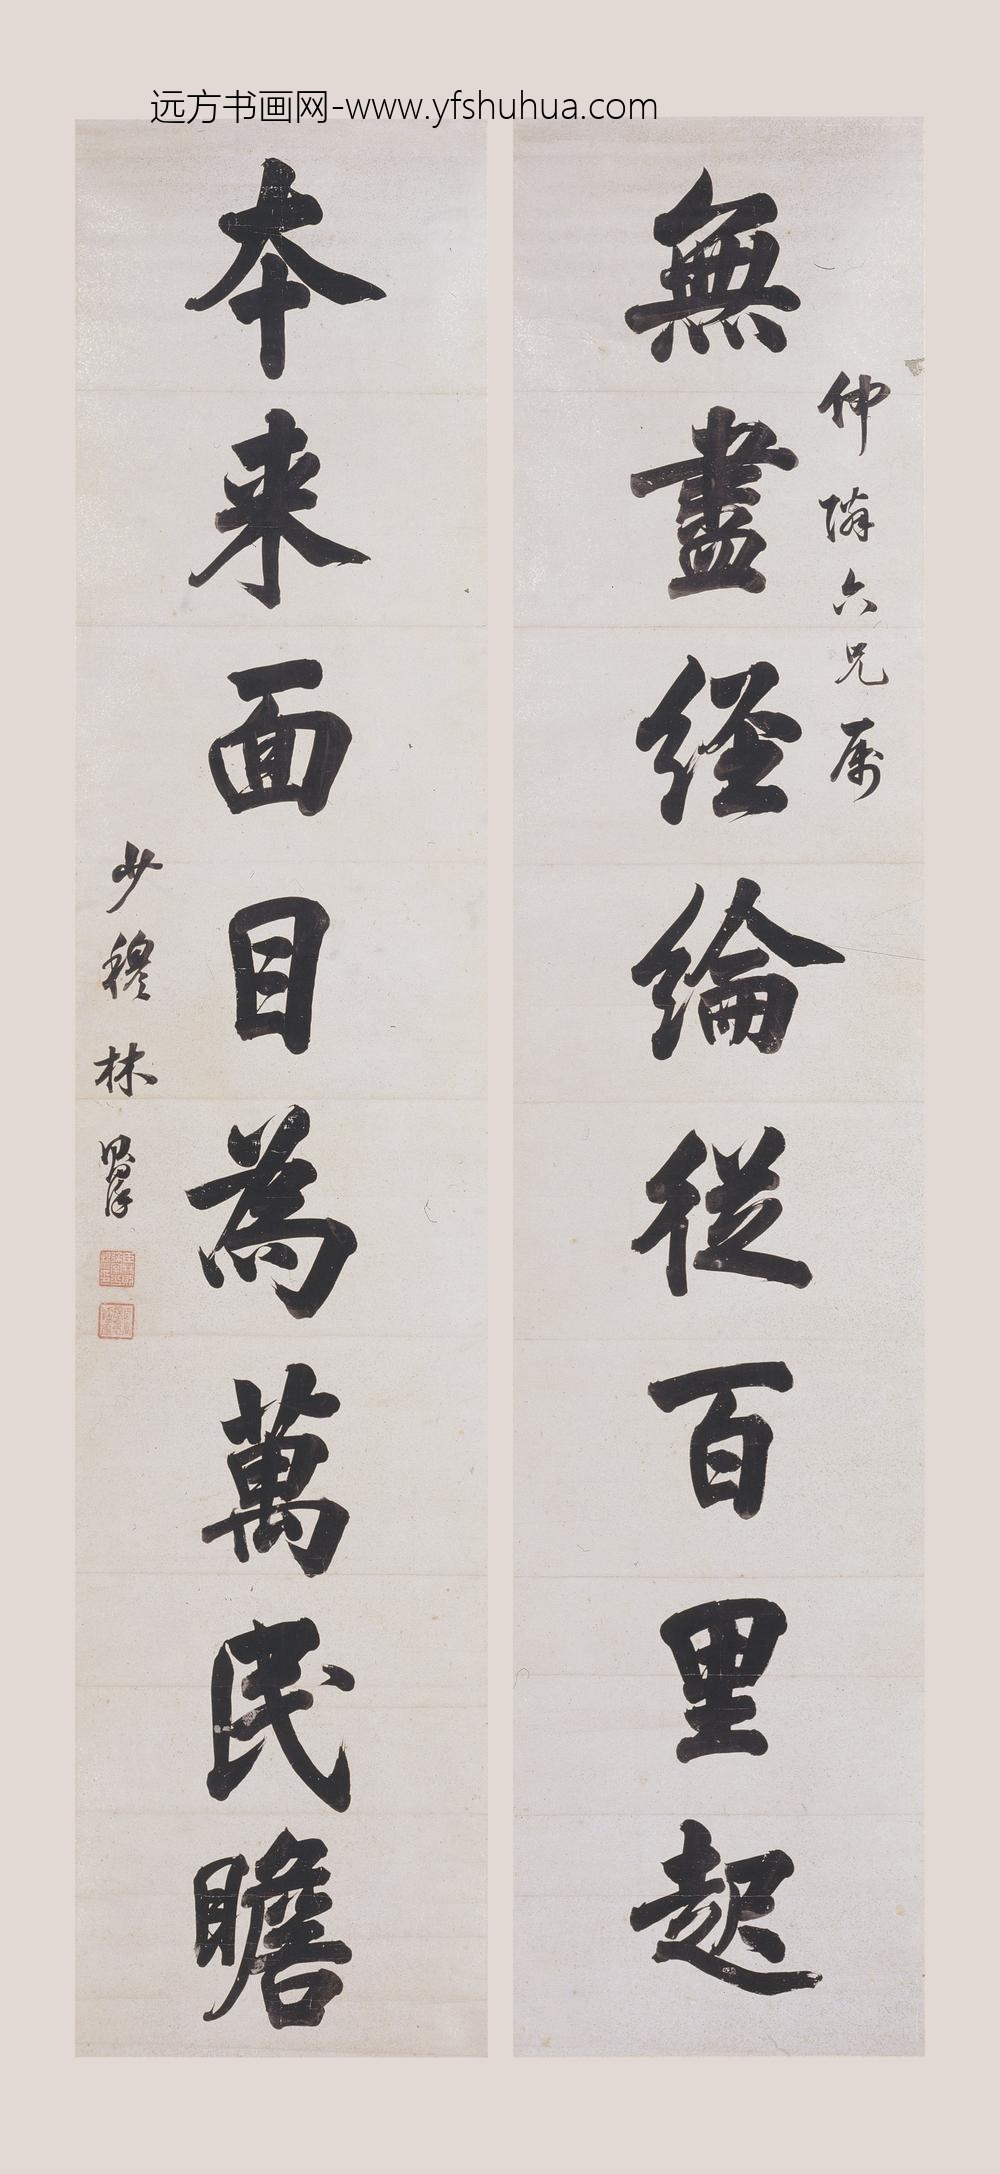 远方书画网-www.yfshuhua.com
仲嶙六兄属
無盡経綸從百里起
本来面目為萬民瞻
少穆林則徐